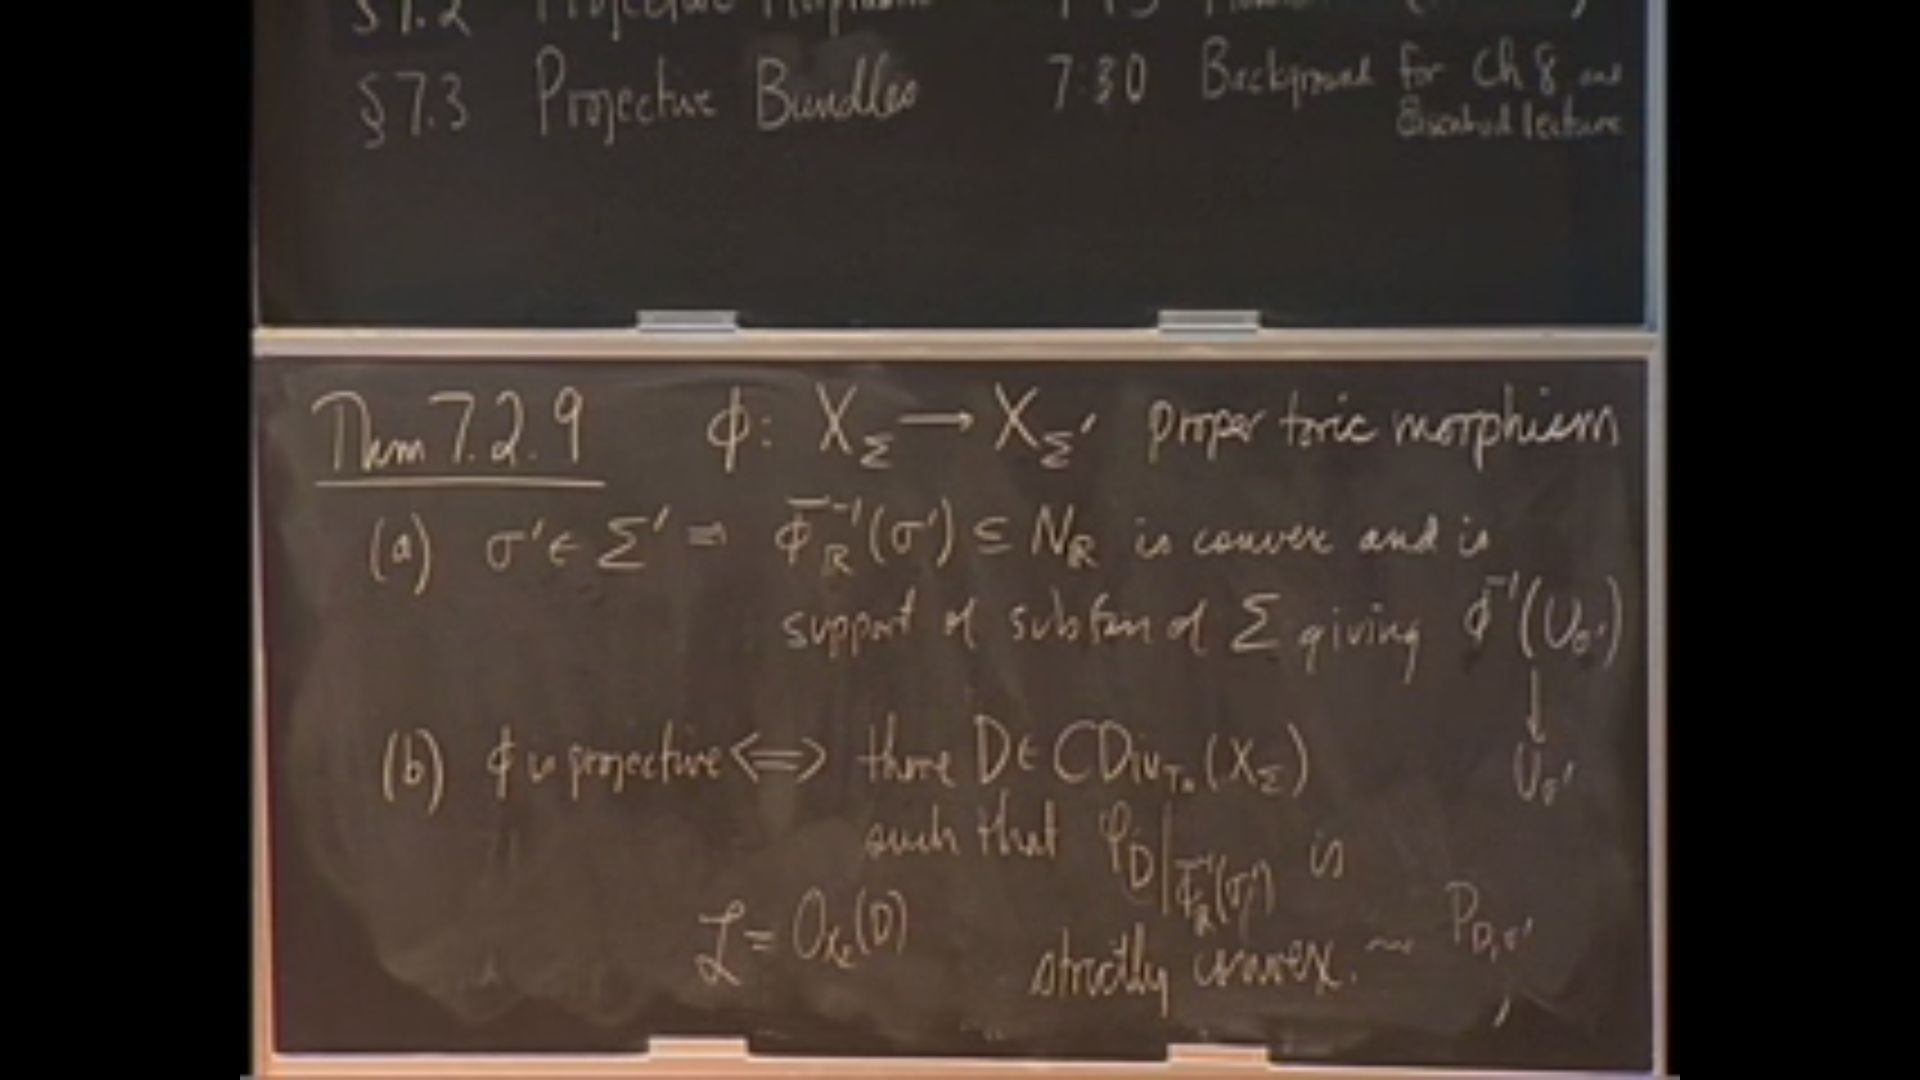 §7.2 Projective Morphisms 7:15
§7.3 Projective Bundles 7:30 Background for Ch 8 and
Eisenbud lecture
Thm 7.2.9 ϕ: X_Σ → X_Σ′ proper toric morphism
(a) σ′ ∈ Σ′ ⇒ Φ̄_ℝ⁻¹(σ′) ⊆ N_ℝ is convex and is
support of subfan of Σ giving ϕ⁻¹(U_σ′)
↓
U_σ′
(b) ϕ is projective ⟺ there D ∈ CDiv_T_N(X_Σ)
such that φ_D|_Φ̄_ℝ⁻¹(σ′) is
strictly convex. ~ P_D,σ′
ℒ = O_X_Σ(D)